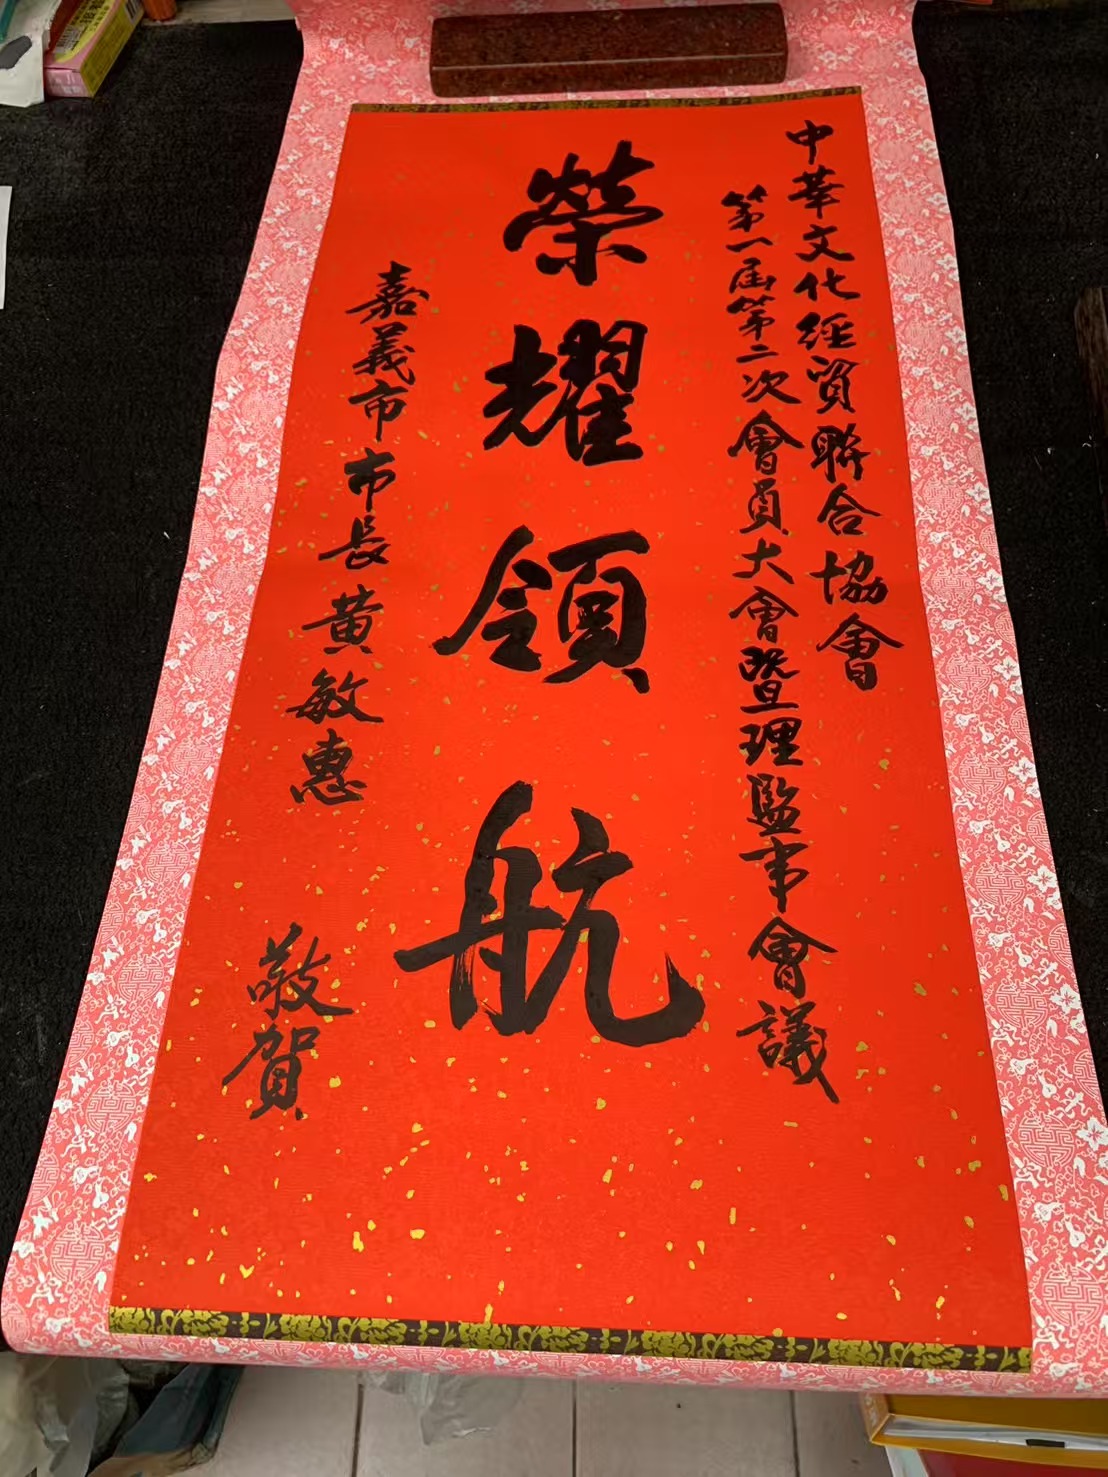 中華文化經貿聯合協會
第一屆第二次會員大會暨理監事會議
榮耀領航
嘉義市市長黃敏惠
敬賀